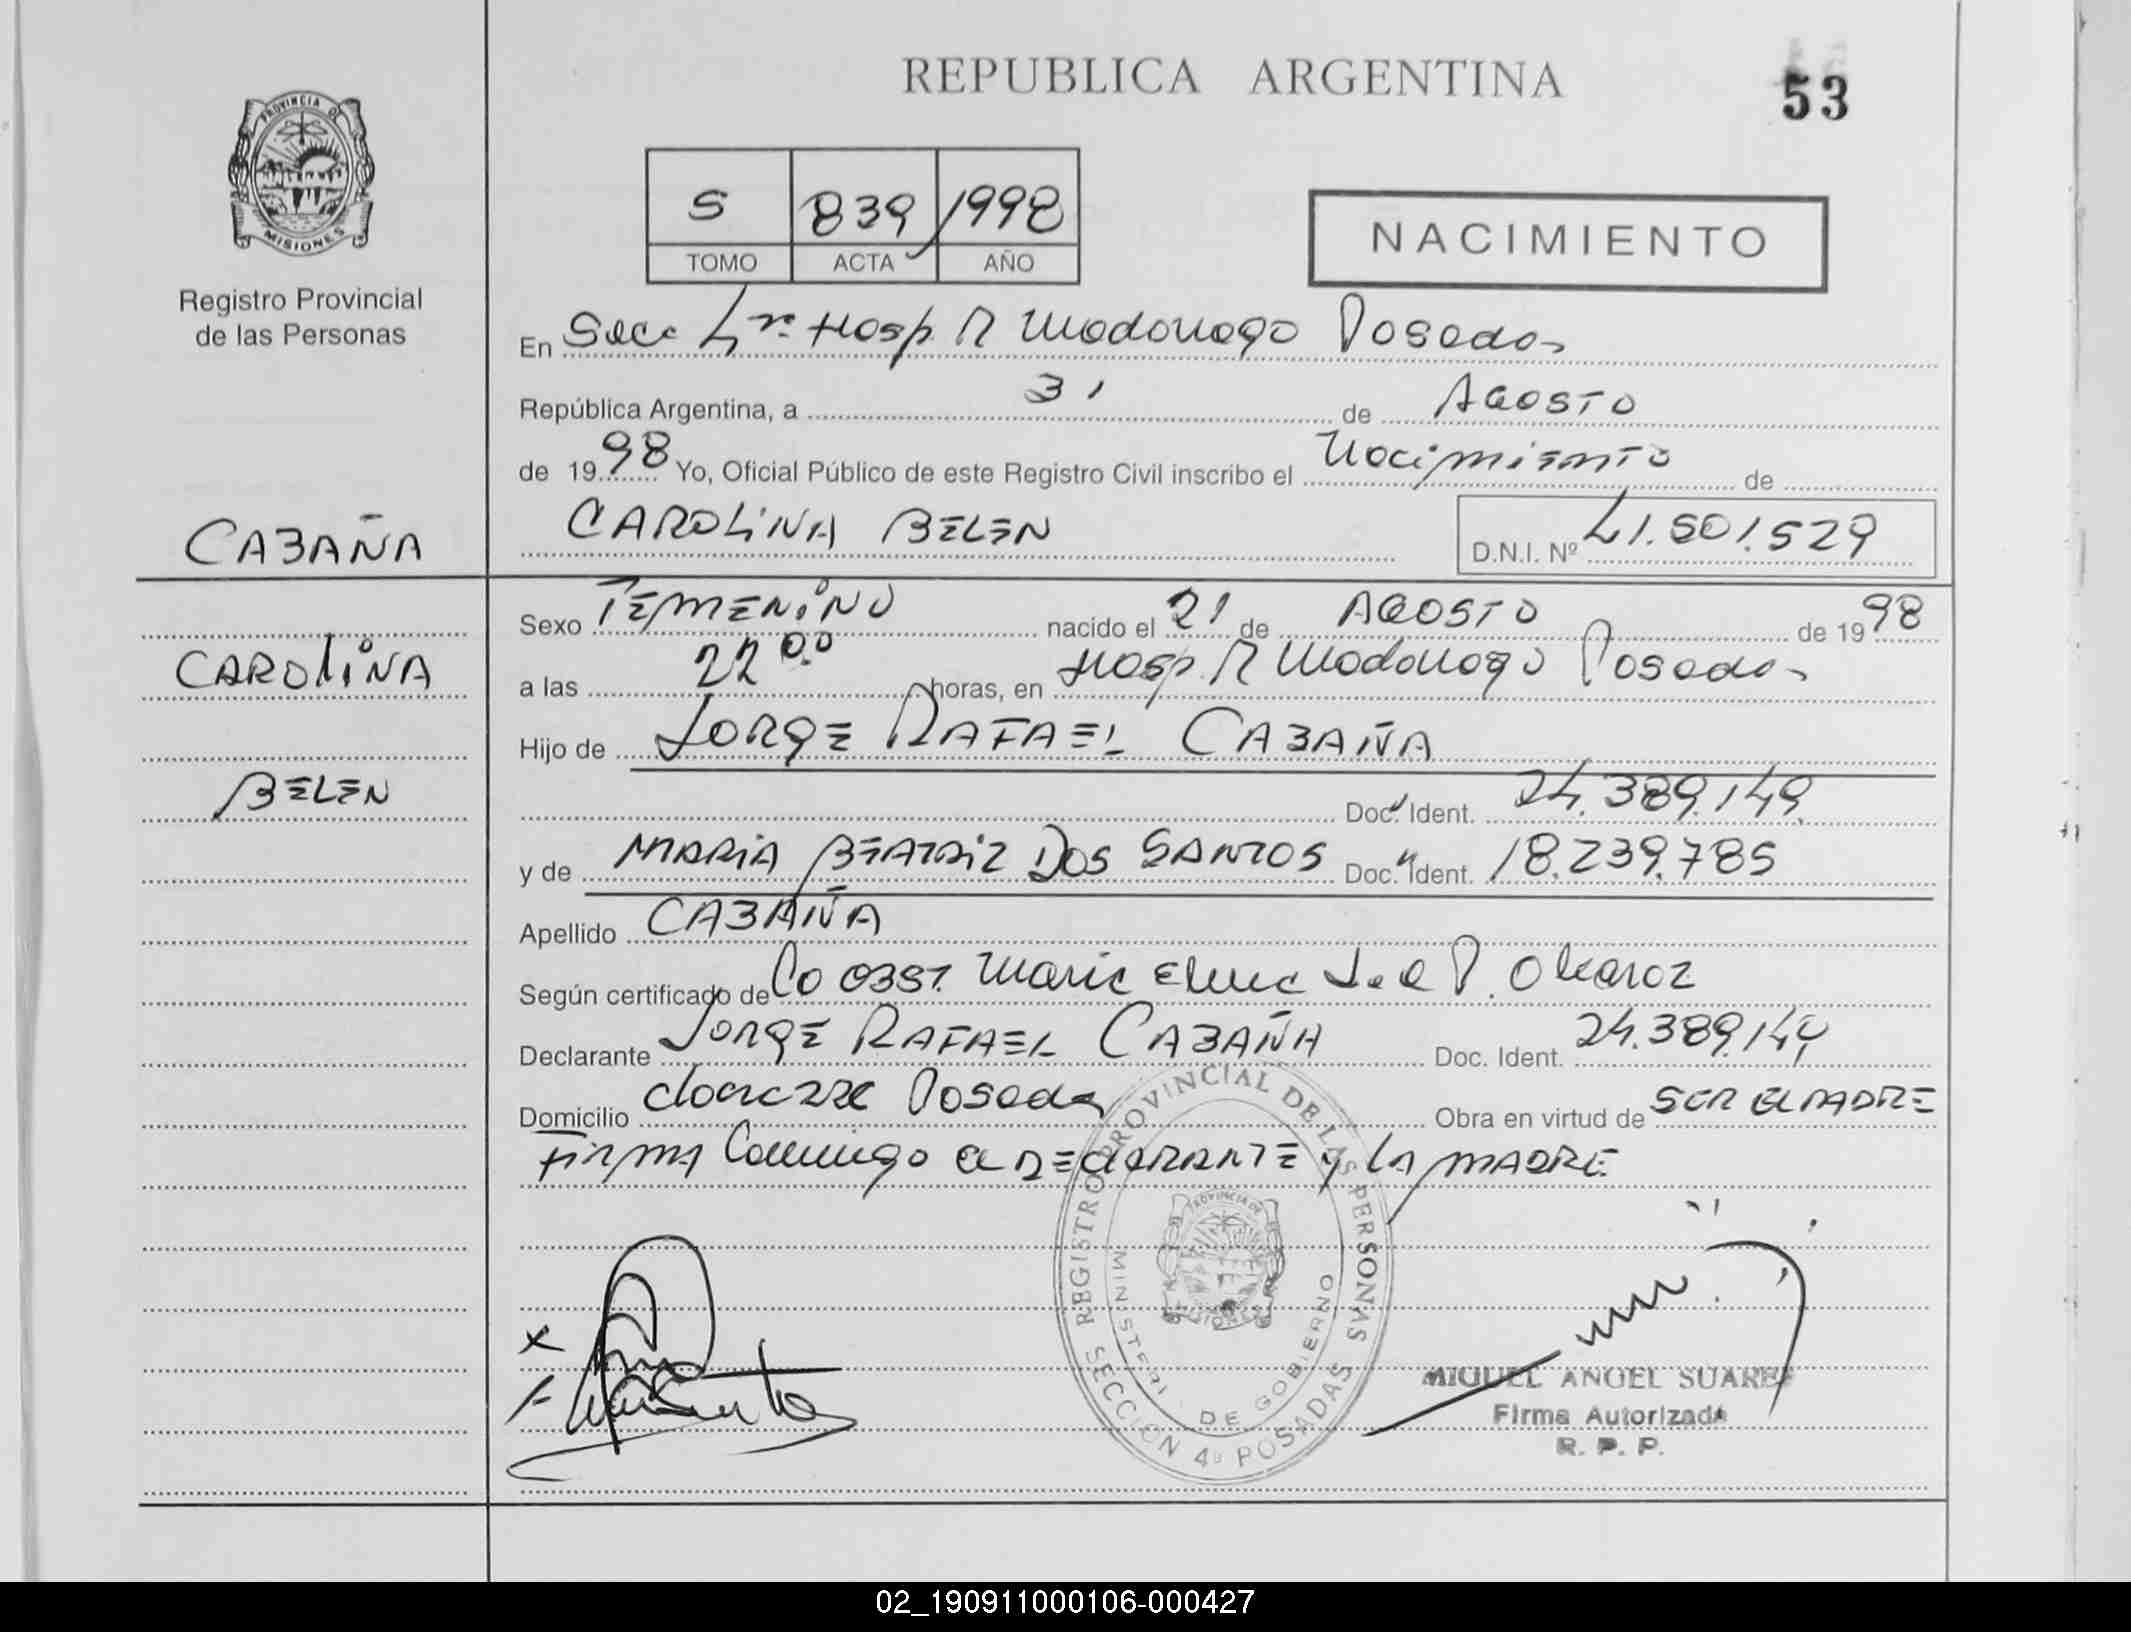 REPUBLICA ARGENTINA
53
PROVINCIA DE
MISIONES
Registro Provincial
de las Personas
5 839 1998
TOMO ACTA AÑO
NACIMIENTO
En Secc 4ta Hosp R Madariaga Posadas
República Argentina, a 31 de AGOSTO
de 1998 Yo, Oficial Público de este Registro Civil inscribo el Nacimiento de
CABAÑA
CAROLINA BELEN
D.N.I. Nº 41.501.529
Sexo FEMENINO nacido el 21 de AGOSTO de 1998
CAROLINA
a las 22 00 horas, en Hosp. R Madariaga Posadas
Hijo de JORGE RAFAEL CABAÑA
BELEN
Doc. Ident. 24.389.149
y de MARIA BEATRIZ DOS SANTOS Doc. Ident. 18.239.785
Apellido CABAÑA
Según certificado de OBST. Maria Elena
Declarante JORGE RAFAEL CABAÑA Doc. Ident. 24.389.149
Domicilio Posadas Obra en virtud de SER EL PADRE
FIRMA Conmigo el DECLARANTE y LA MADRE
REGISTRO PROVINCIAL DE LAS PERSONAS
MINISTERI DE GOBIERNO
SECCION 4ª POSADAS
MIGUEL ANGEL SUAREZ
Firma Autorizada
R. P. P.
02_190911000106-000427